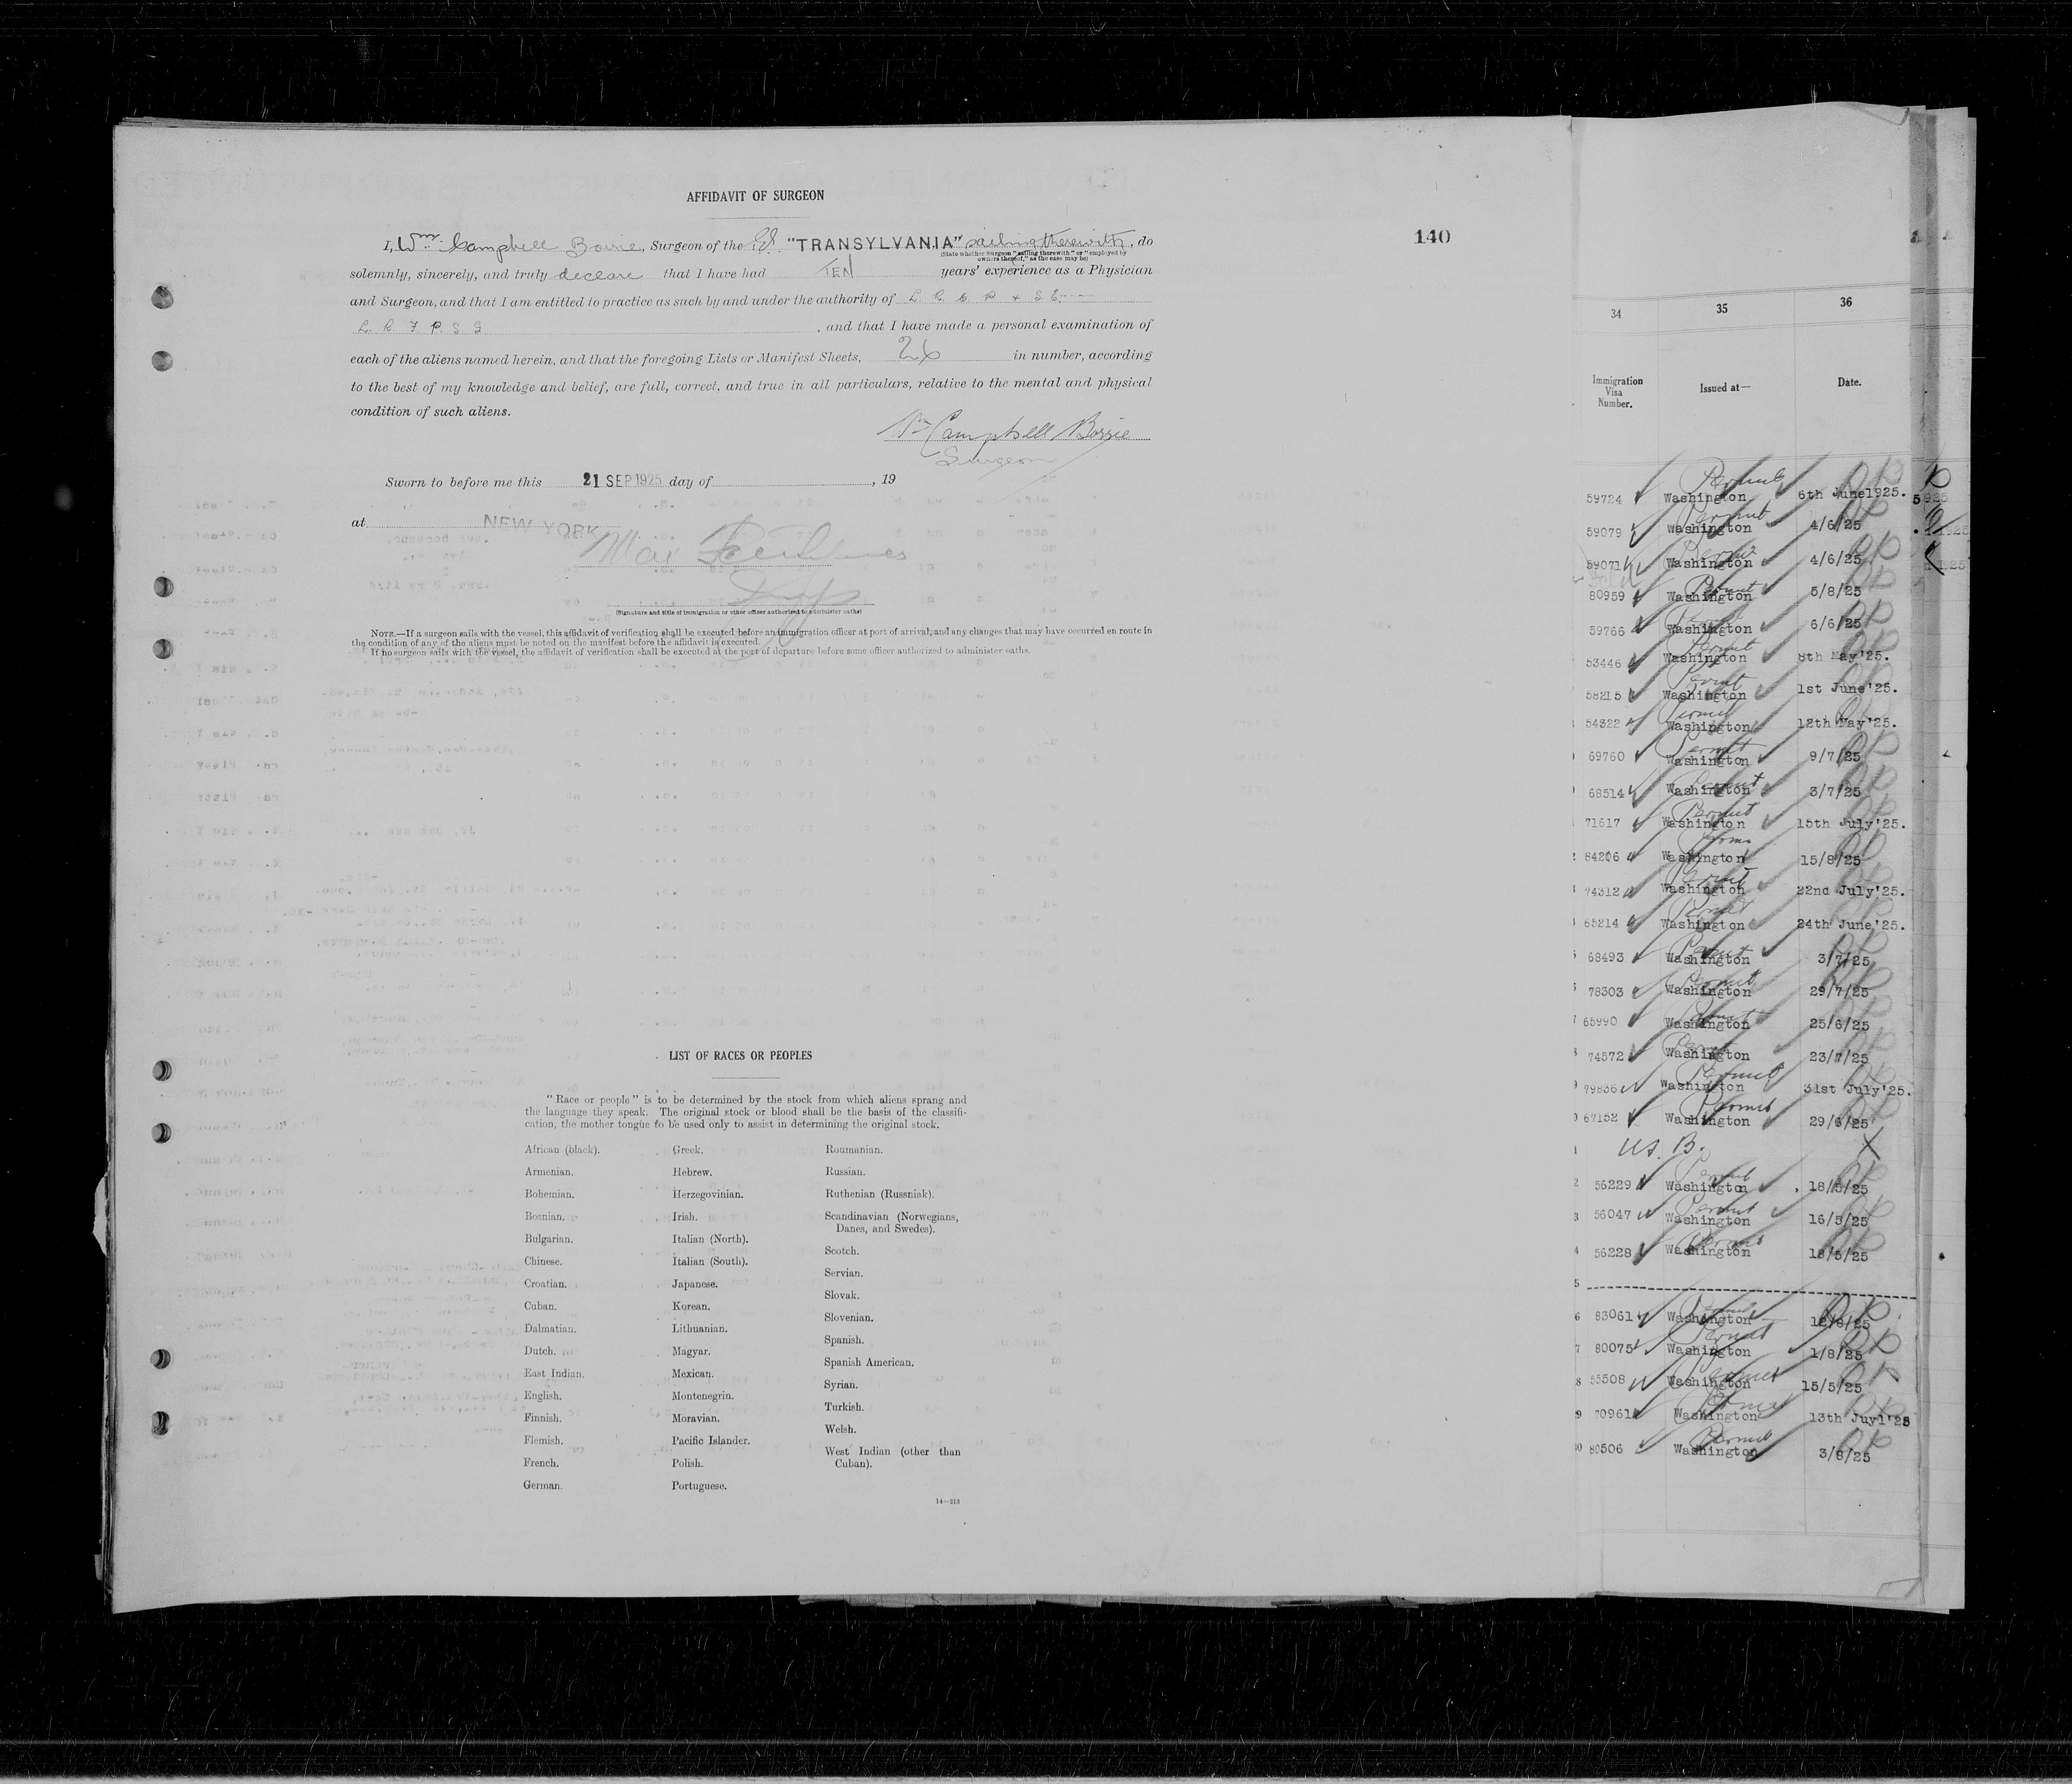 AFFIDAVIT OF SURGEON
I, Wm. Campbell Borrie, Surgeon of the S.S. "TRANSYLVANIA" sailing therewith, do
(State whether Surgeon "sailing therewith" or "employed by
owners thereof," as the case may be)
solemnly, sincerely, and truly declare that I have had TEN years' experience as a Physician
and Surgeon, and that I am entitled to practice as such by and under the authority of L. R. C. P. & S. E.
L. R. F. P. S. G , and that I have made a personal examination of
each of the aliens named herein, and that the foregoing Lists or Manifest Sheets, 26 in number, according
to the best of my knowledge and belief, are full, correct, and true in all particulars, relative to the mental and physical
condition of such aliens.
Wm Campbell Borrie
Surgeon
Sworn to before me this 21 SEP 1925 day of , 19
at NEW YORK
(Signature and title of immigration or other officer authorized to administer oaths)
NOTE.—If a surgeon sails with the vessel, this affidavit of verification shall be executed before an immigration officer at port of arrival, and any changes that may have occurred en route in
the condition of any of the aliens must be noted on the manifest before the affidavit is executed.
If no surgeon sails with the vessel, the affidavit of verification shall be executed at the port of departure before some officer authorized to administer oaths.
LIST OF RACES OR PEOPLES
"Race or people" is to be determined by the stock from which aliens sprang and
the language they speak. The original stock or blood shall be the basis of the classifi-
cation, the mother tongue to be used only to assist in determining the original stock.
African (black).
Armenian.
Bohemian.
Bosnian.
Bulgarian.
Chinese.
Croatian.
Cuban.
Dalmatian.
Dutch.
East Indian.
English.
Finnish.
Flemish.
French.
German.
Greek.
Hebrew.
Herzegovinian.
Irish.
Italian (North).
Italian (South).
Japanese.
Korean.
Lithuanian.
Magyar.
Mexican.
Montenegrin.
Moravian.
Pacific Islander.
Polish.
Portuguese.
Roumanian.
Russian.
Ruthenian (Russniak).
Scandinavian (Norwegians,
Danes, and Swedes).
Scotch.
Servian.
Slovak.
Slovenian.
Spanish.
Spanish American.
Syrian.
Turkish.
Welsh.
West Indian (other than
Cuban).
14—213
140
34 35 36
Immigration Visa Number. Issued at— Date.
59724 Permit Washington 6th June1925.
59079 Permit Washington 4/6/25
59071 Permit Washington 4/6/25
80959 Permit Washington 5/8/25
59766 Permit Washington 6/6/25
53446 Permit Washington 8th May'25.
58215 Permit Washington 1st June'25.
54322 Permit Washington 12th May'25.
69760 Permit Washington 9/7/25
68514 Permit Washington 3/7/25
71617 Permit Washington 15th July'25.
84206 Permit Washington 15/8/25
74312 Permit Washington 22nd July'25.
65214 Permit Washington 24th June'25.
68493 Permit Washington 3/7/25
78303 Permit Washington 29/7/25
65990 Permit Washington 25/6/25
74572 Permit Washington 23/7/25
79836 Permit Washington 31st July'25.
67152 Permit Washington 29/6/25
U.S. B. X
56229 Permit Washington 18/5/25
56047 Permit Washington 16/5/25
56228 Permit Washington 18/5/25
83061 Permit Washington 12/8/25
80075 Permit Washington 1/8/25
55508 Permit Washington 15/5/25
70961 Permit Washington 13th Juyl'25
80506 Permit Washington 3/8/25